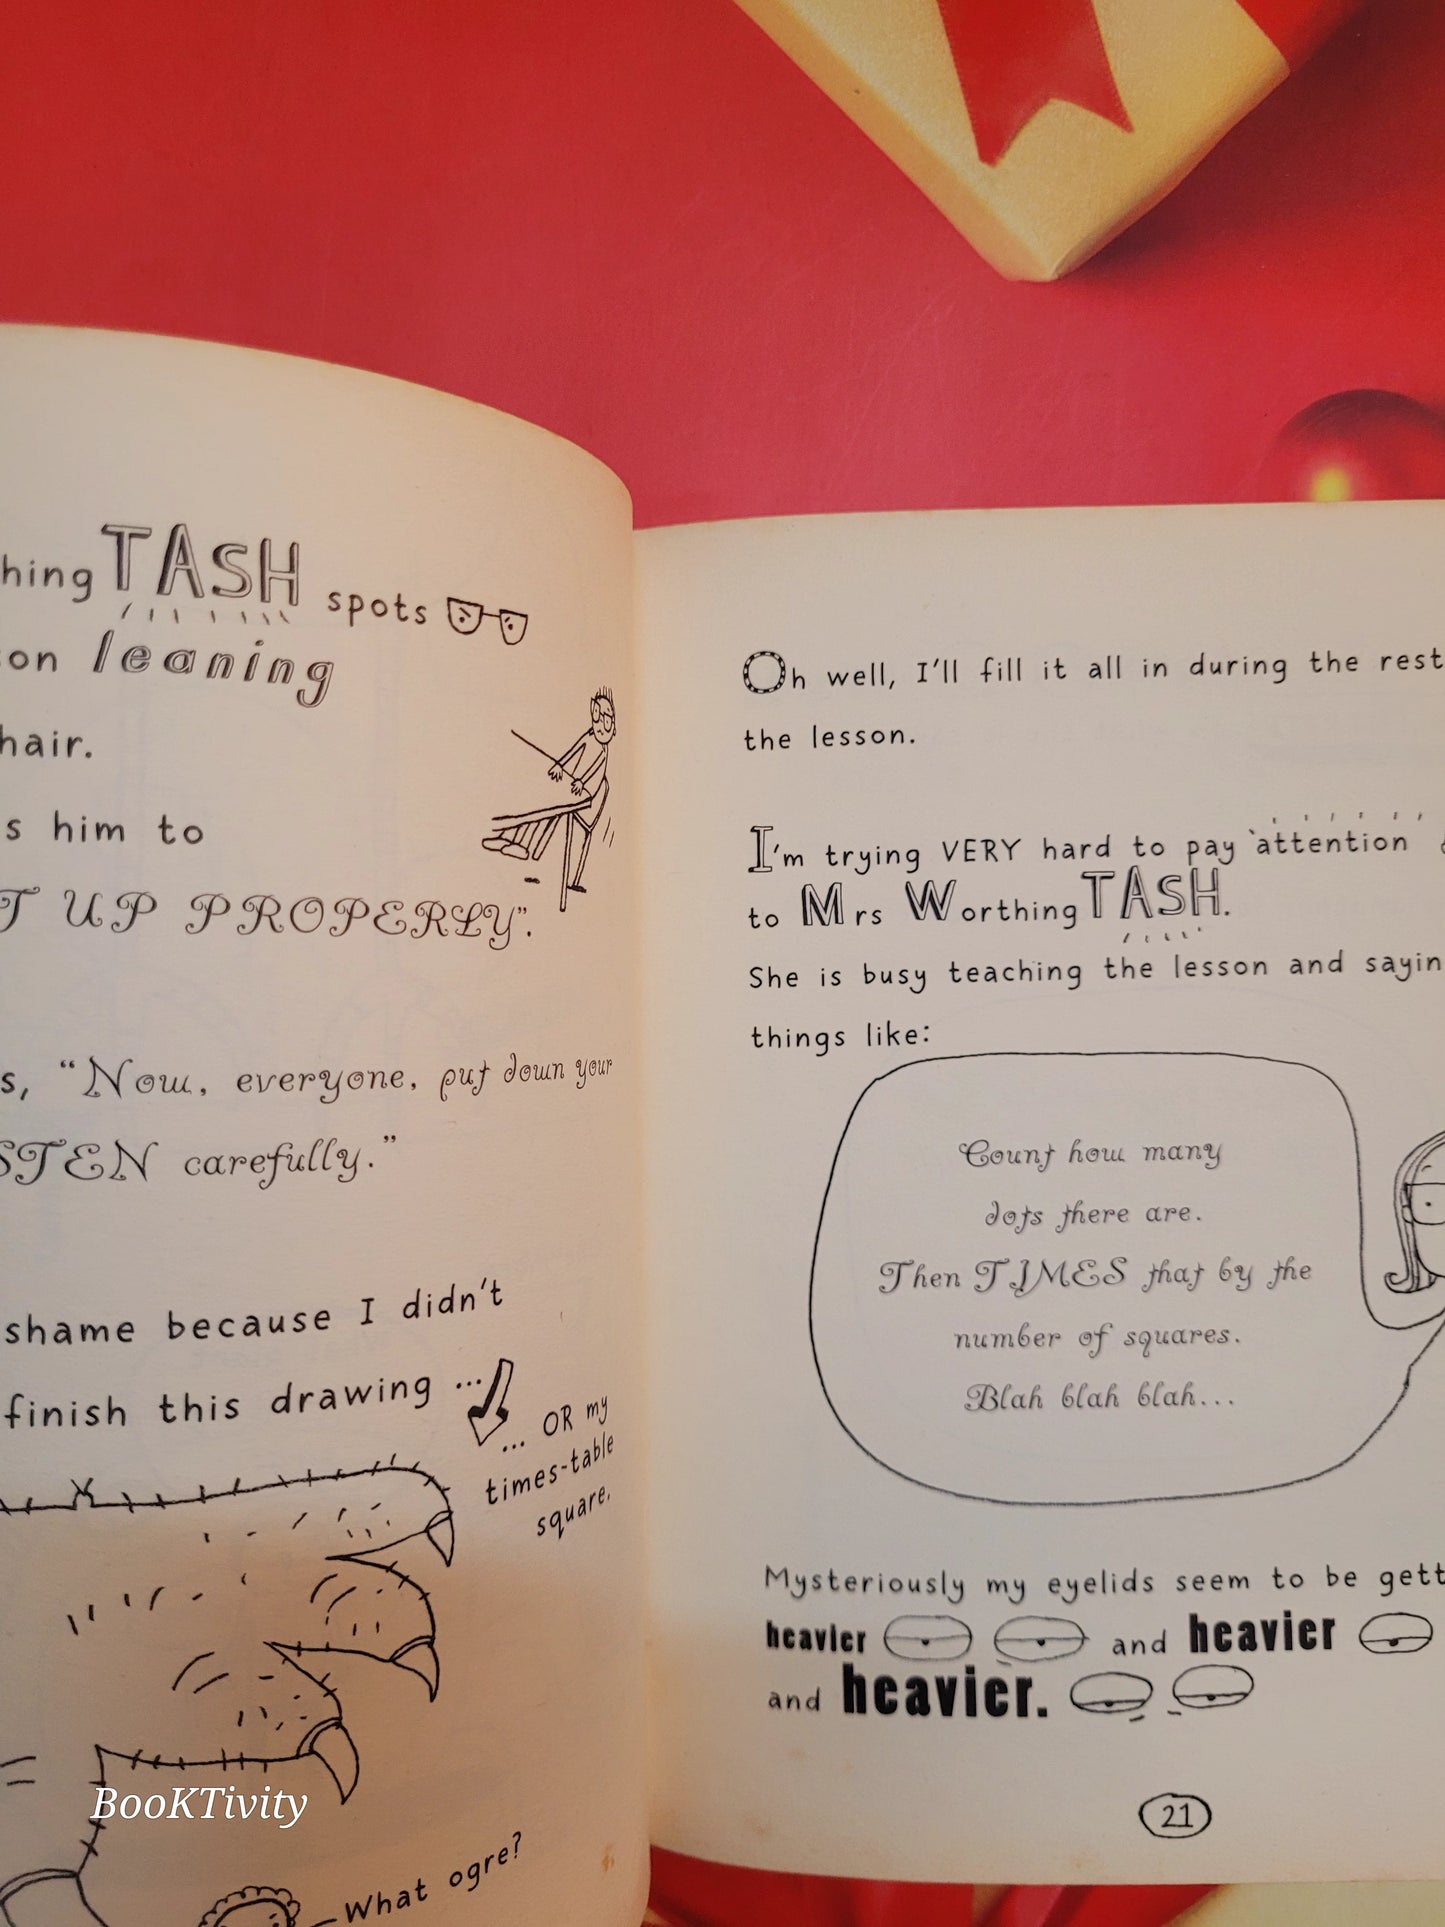 hing TASH spots
on leaning
hair.
s him to
T UP PROPERLY".
s, “Now, everyone, put down your
STEN carefully.”
shame because I didn't
finish this drawing ...
... OR my
times-table
square.
What ogre?
BooKTivity
Oh well, I'll fill it all in during the rest
the lesson.
I'm trying VERY hard to pay attention
to Mrs WorthingTASH.
She is busy teaching the lesson and sayin
things like:
Count how many
dots there are.
Then TIMES that by the
number of squares.
Blah blah blah...
Mysteriously my eyelids seem to be gett
heavier and heavier
and heavier.
21